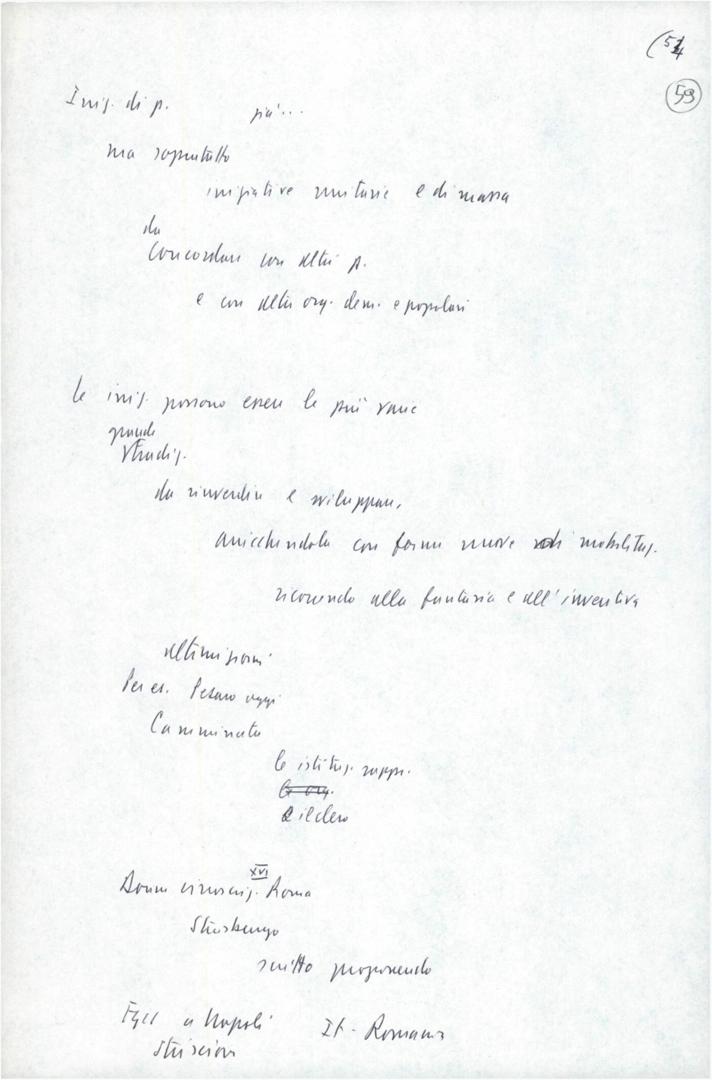 (54
59
Iniz. di p. più...
ma soprattutto
iniziative unitarie e di massa
da
concordare con altri p.
e con altre org. dem. e popolari
Le iniz. possono essere le più varie
grande
tradiz.
da rinverdire e sviluppare,
arricchendola con forme nuove di mobilitaz.
ricorrendo alla fantasia e all'inventiva
ultimi giorni
Per es. Pesaro oggi
Camminata
le istituz. rappr.
e il clero
XVI
Donne circoscriz. Roma
Strasburgo
scritto proponendo
FGCI a Napoli It-
Striscioni